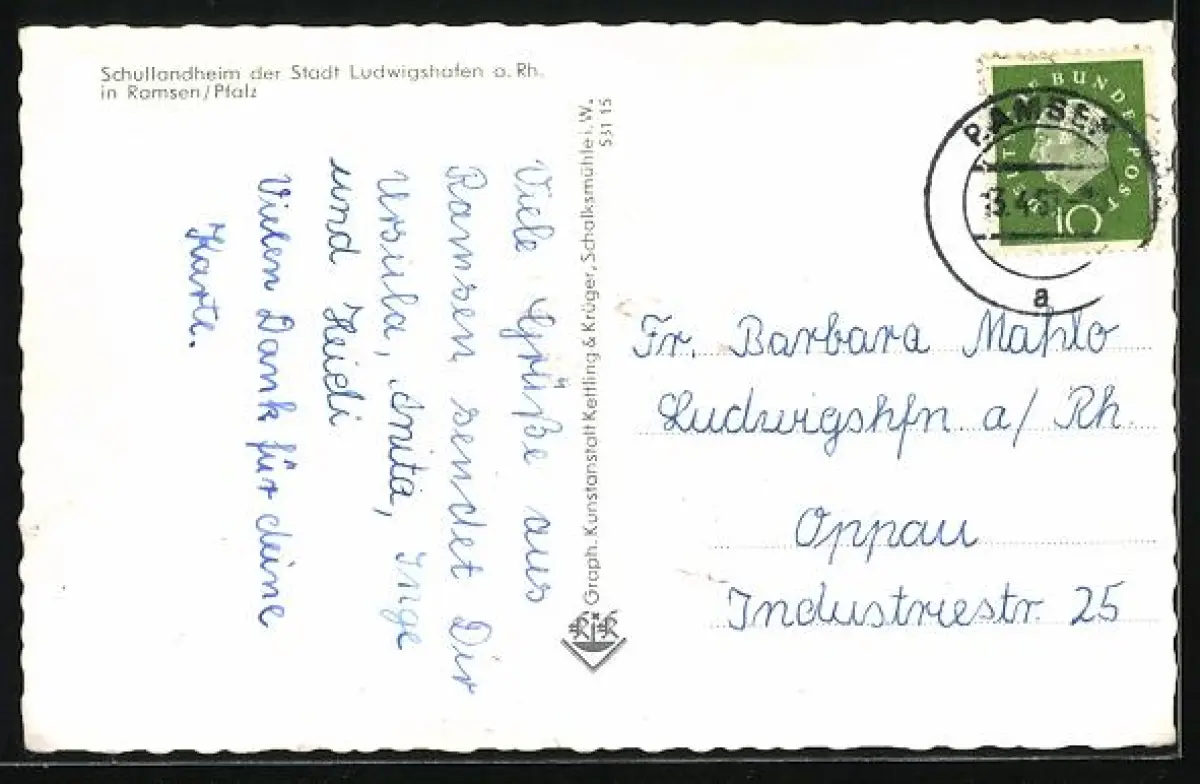 Schullandheim der Stadt Ludwigshafen a. Rh.
in Ramsen/Pfalz
Viele Grüße aus
Ramsen sendet Dir
Ursula, Anita, Inge
und Heidi
Vielen Dank für deine
Karte.
Graph. Kunstanstalt Kettling & Krüger, Schalksmühle i. W.
531 15
DEUTSCHE BUNDESPOST
10
RAMSEN
a
Fr. Barbara Mahlo
Ludwigshfn a/Rh.
Oppau
Industriestr. 25